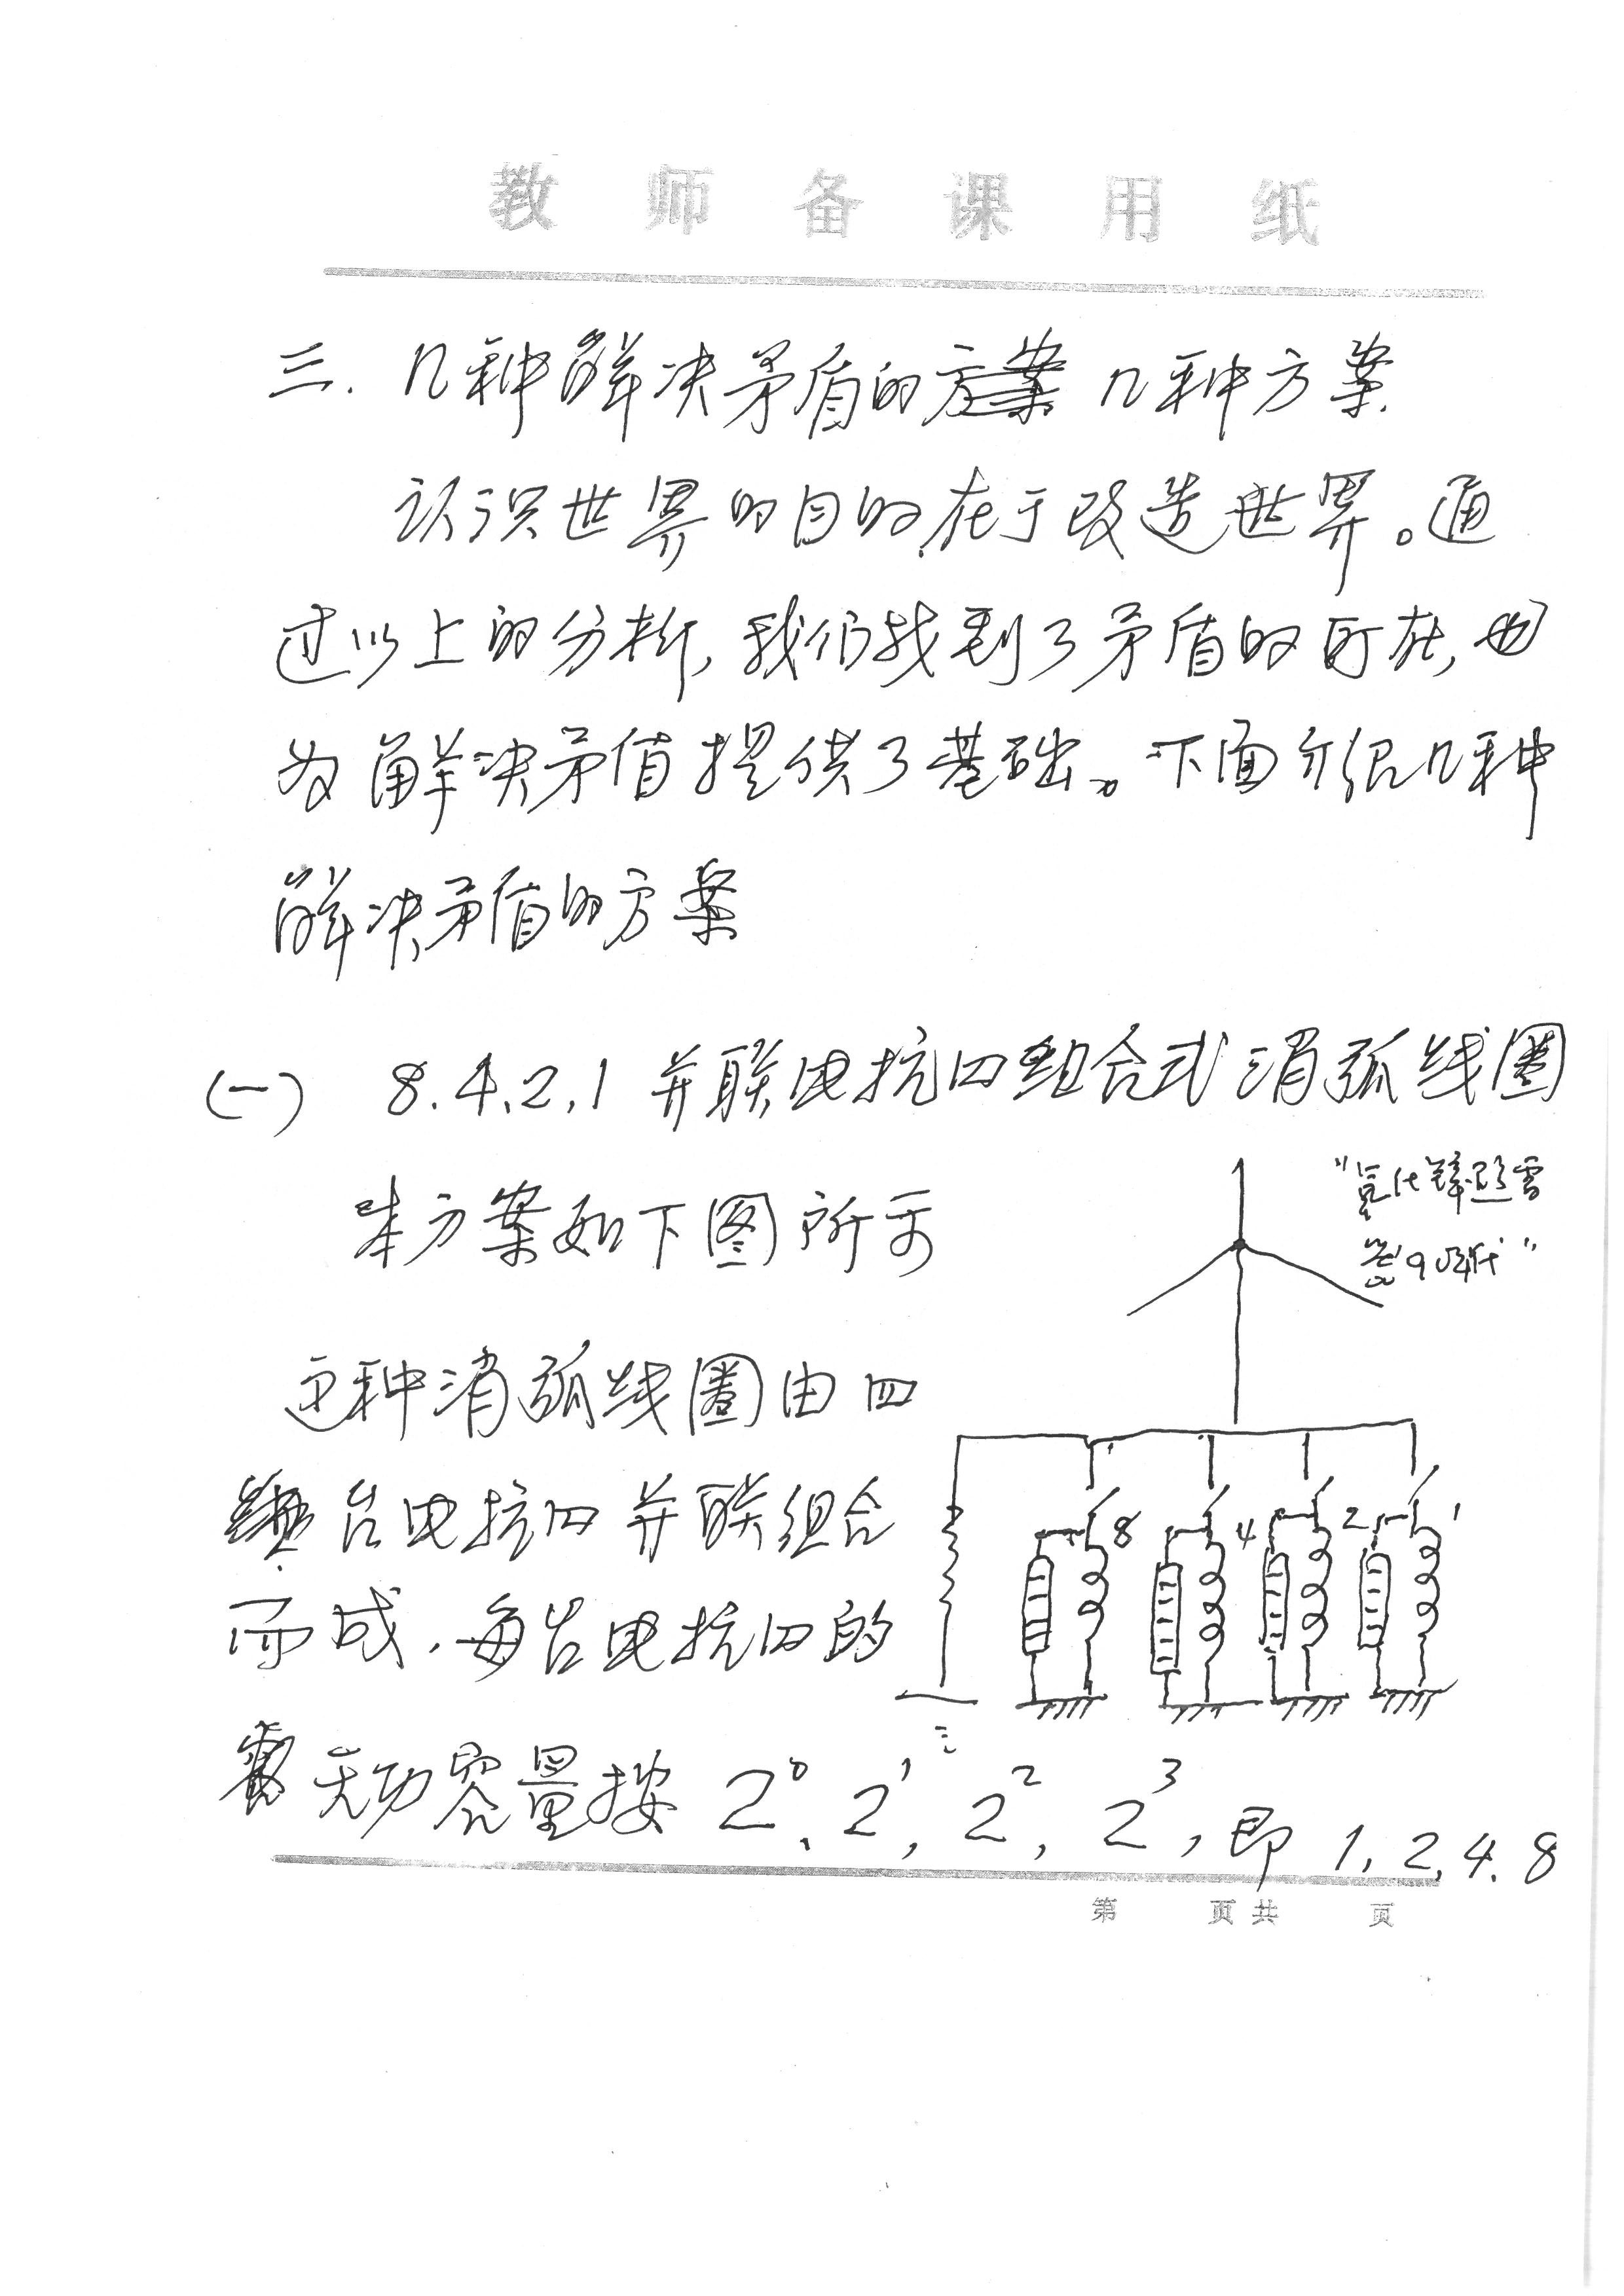 教师备课用纸
三. 几种解决矛盾的方案 几种方案.
认识世界的目的在于改造世界。通
过以上的分析,我们找到了矛盾的所在,也
为解决矛盾提供了基础。下面介绍几种
解决矛盾的方案
(一) 8.4.2.1 并联电抗四组合式消弧线圈
本方案如下图所示
"氧化锌避雷
器 时代"
这种消弧线圈由四
台电抗四并联组合
而成.每台电抗四的
8 4 2 1
无功容量按 2⁰、2¹, 2², 2³, 即 1, 2, 4. 8
第 页 共 页